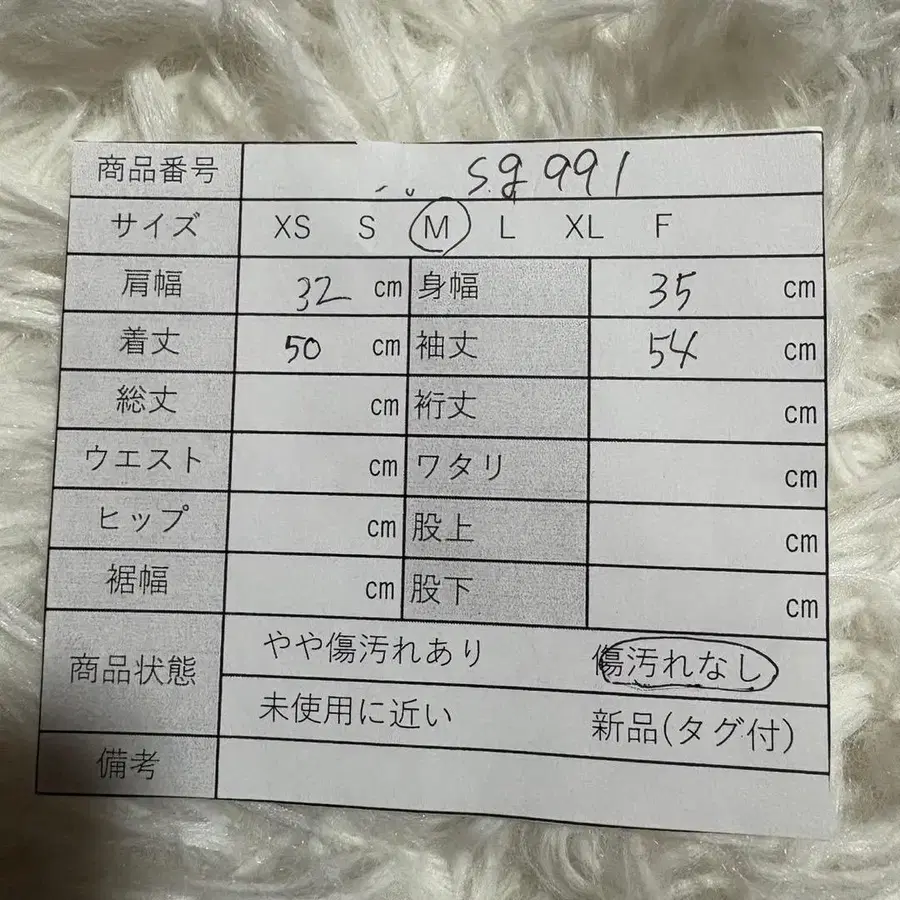 商品番号 sg991
サイズ XS S M L XL F
肩幅 32 cm 身幅 35 cm
着丈 50 cm 袖丈 54 cm
総丈 cm 裄丈 cm
ウエスト cm ワタリ cm
ヒップ cm 股上 cm
裾幅 cm 股下 cm
商品状態 やや傷汚れあり 傷汚れなし
未使用に近い 新品(タグ付)
備考